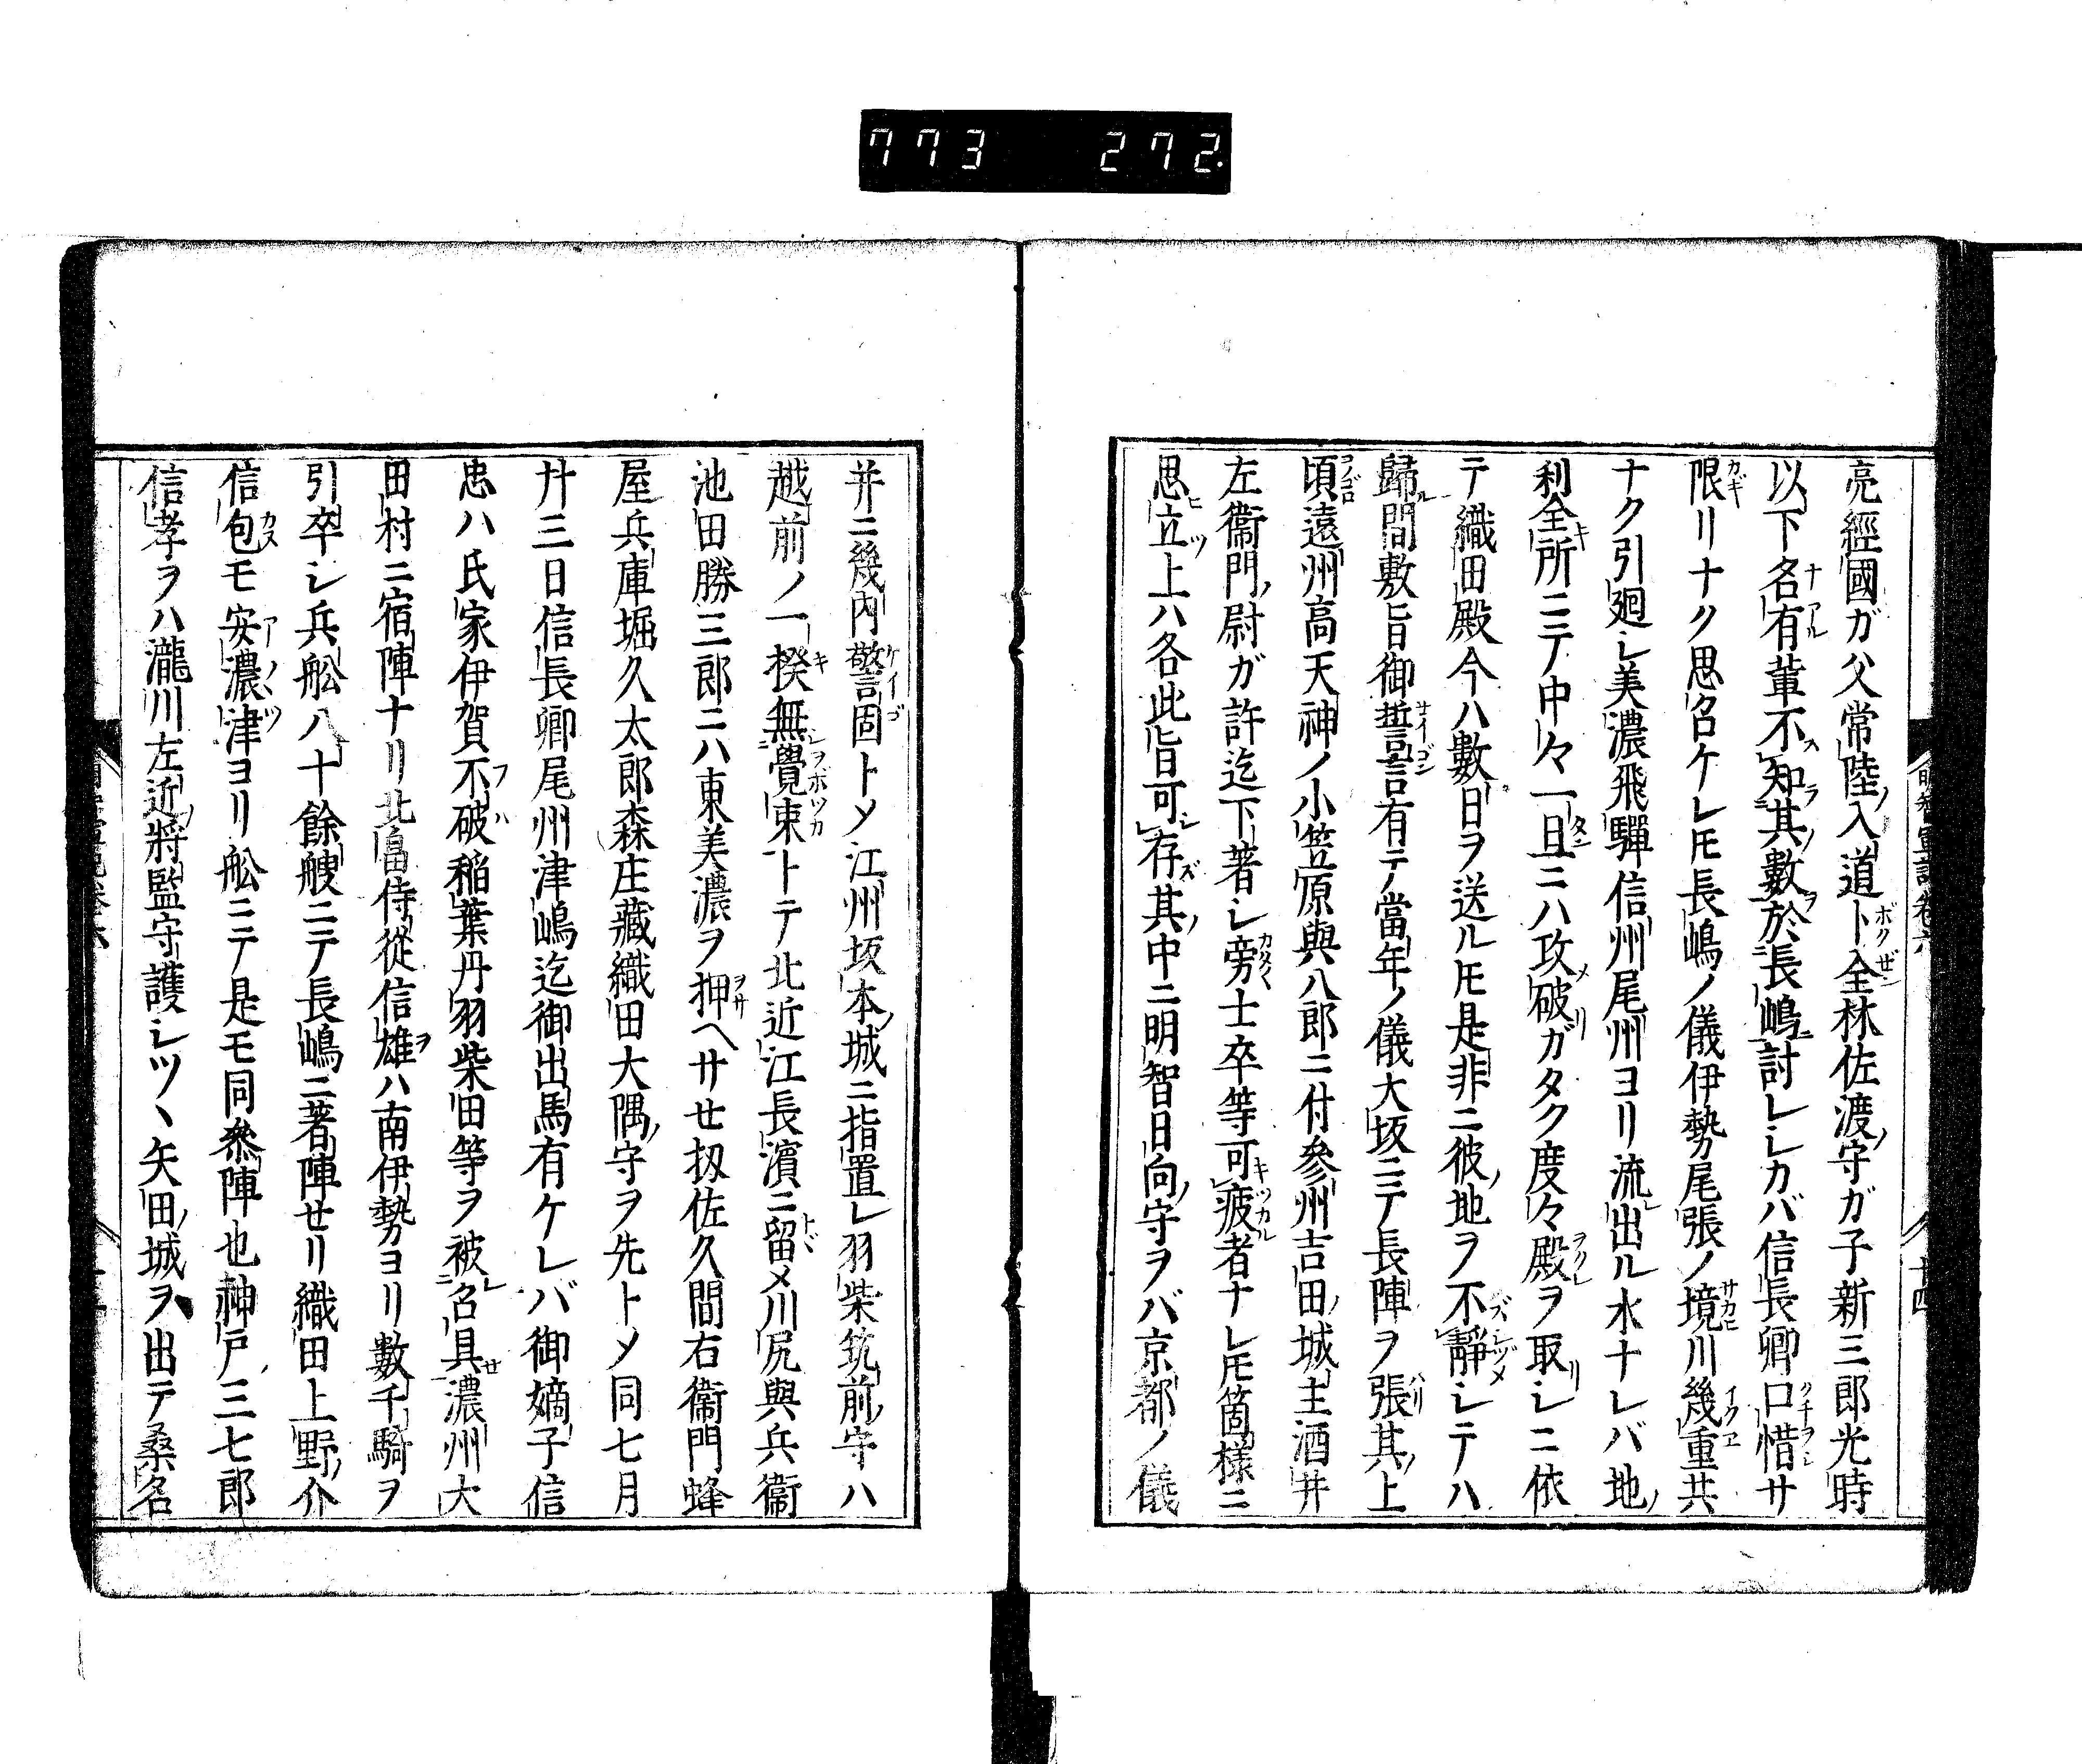 773 272.
亮經國ガ父常陸ノ入道卜全林佐渡ノ守ガ子新三郎光時
以下名有輩不知其數於長嶋討レシカバ信長卿口惜サ
限リナク思召ケレ𪜈長嶋ノ儀伊勢尾張ノ境川幾重共
ナク引廻シ美濃飛驒信州尾州ヨリ流出ル水ナレバ地ノ
利全所ニテ中々一旦ニハ攻破ガタク度々殿ヲ取シニ依
テ織田殿今ハ數日ヲ送ル𪜈是非ニ彼ノ地ヲ不靜シテハ
歸間敷旨御誓言有テ當年ノ儀大坂ニテ長陣ヲ張其ノ上
頃遠州高天神ノ小笠原與八郎ニ付參州吉田ノ城主酒井
左衞門ノ尉ガ許迄下著シ旁士卒等可疲者ナレ𪜈箇樣ニ
思立上ハ各此旨可存其ノ中ニ明智日向ノ守ヲバ京都ノ儀
并ニ幾內警固トメ江州坂本ノ城ニ指置レ羽柴筑前ノ守ハ
越前ノ一揆無覺束トテ北近江長濱ニ留メ川尻與兵衞
池田勝三郎ニハ東美濃ヲ押ヘサせ扨佐久間右衞門蜂
屋兵庫堀久太郎森庄藏織田大隅ノ守ヲ先トメ同七月
廾三日信長卿尾州津嶋迄御出馬有ケレバ御嫡子信
忠ハ氏家伊賀不破稲葉丹羽柴田等ヲ被召具濃州大
田村ニ宿陣ナリ北畠侍從信雄ハ南伊勢ヨリ數千騎ヲ
引卒シ兵舩八十餘艘ニテ長嶋ニ著陣せリ織田上野ノ介
信包モ安濃津ヨリ舩ニテ是モ同參陣也神戸三七郎
信孝ヲハ瀧川左近ノ將監守護シツヽ矢田ノ城ヲ出テ桑名